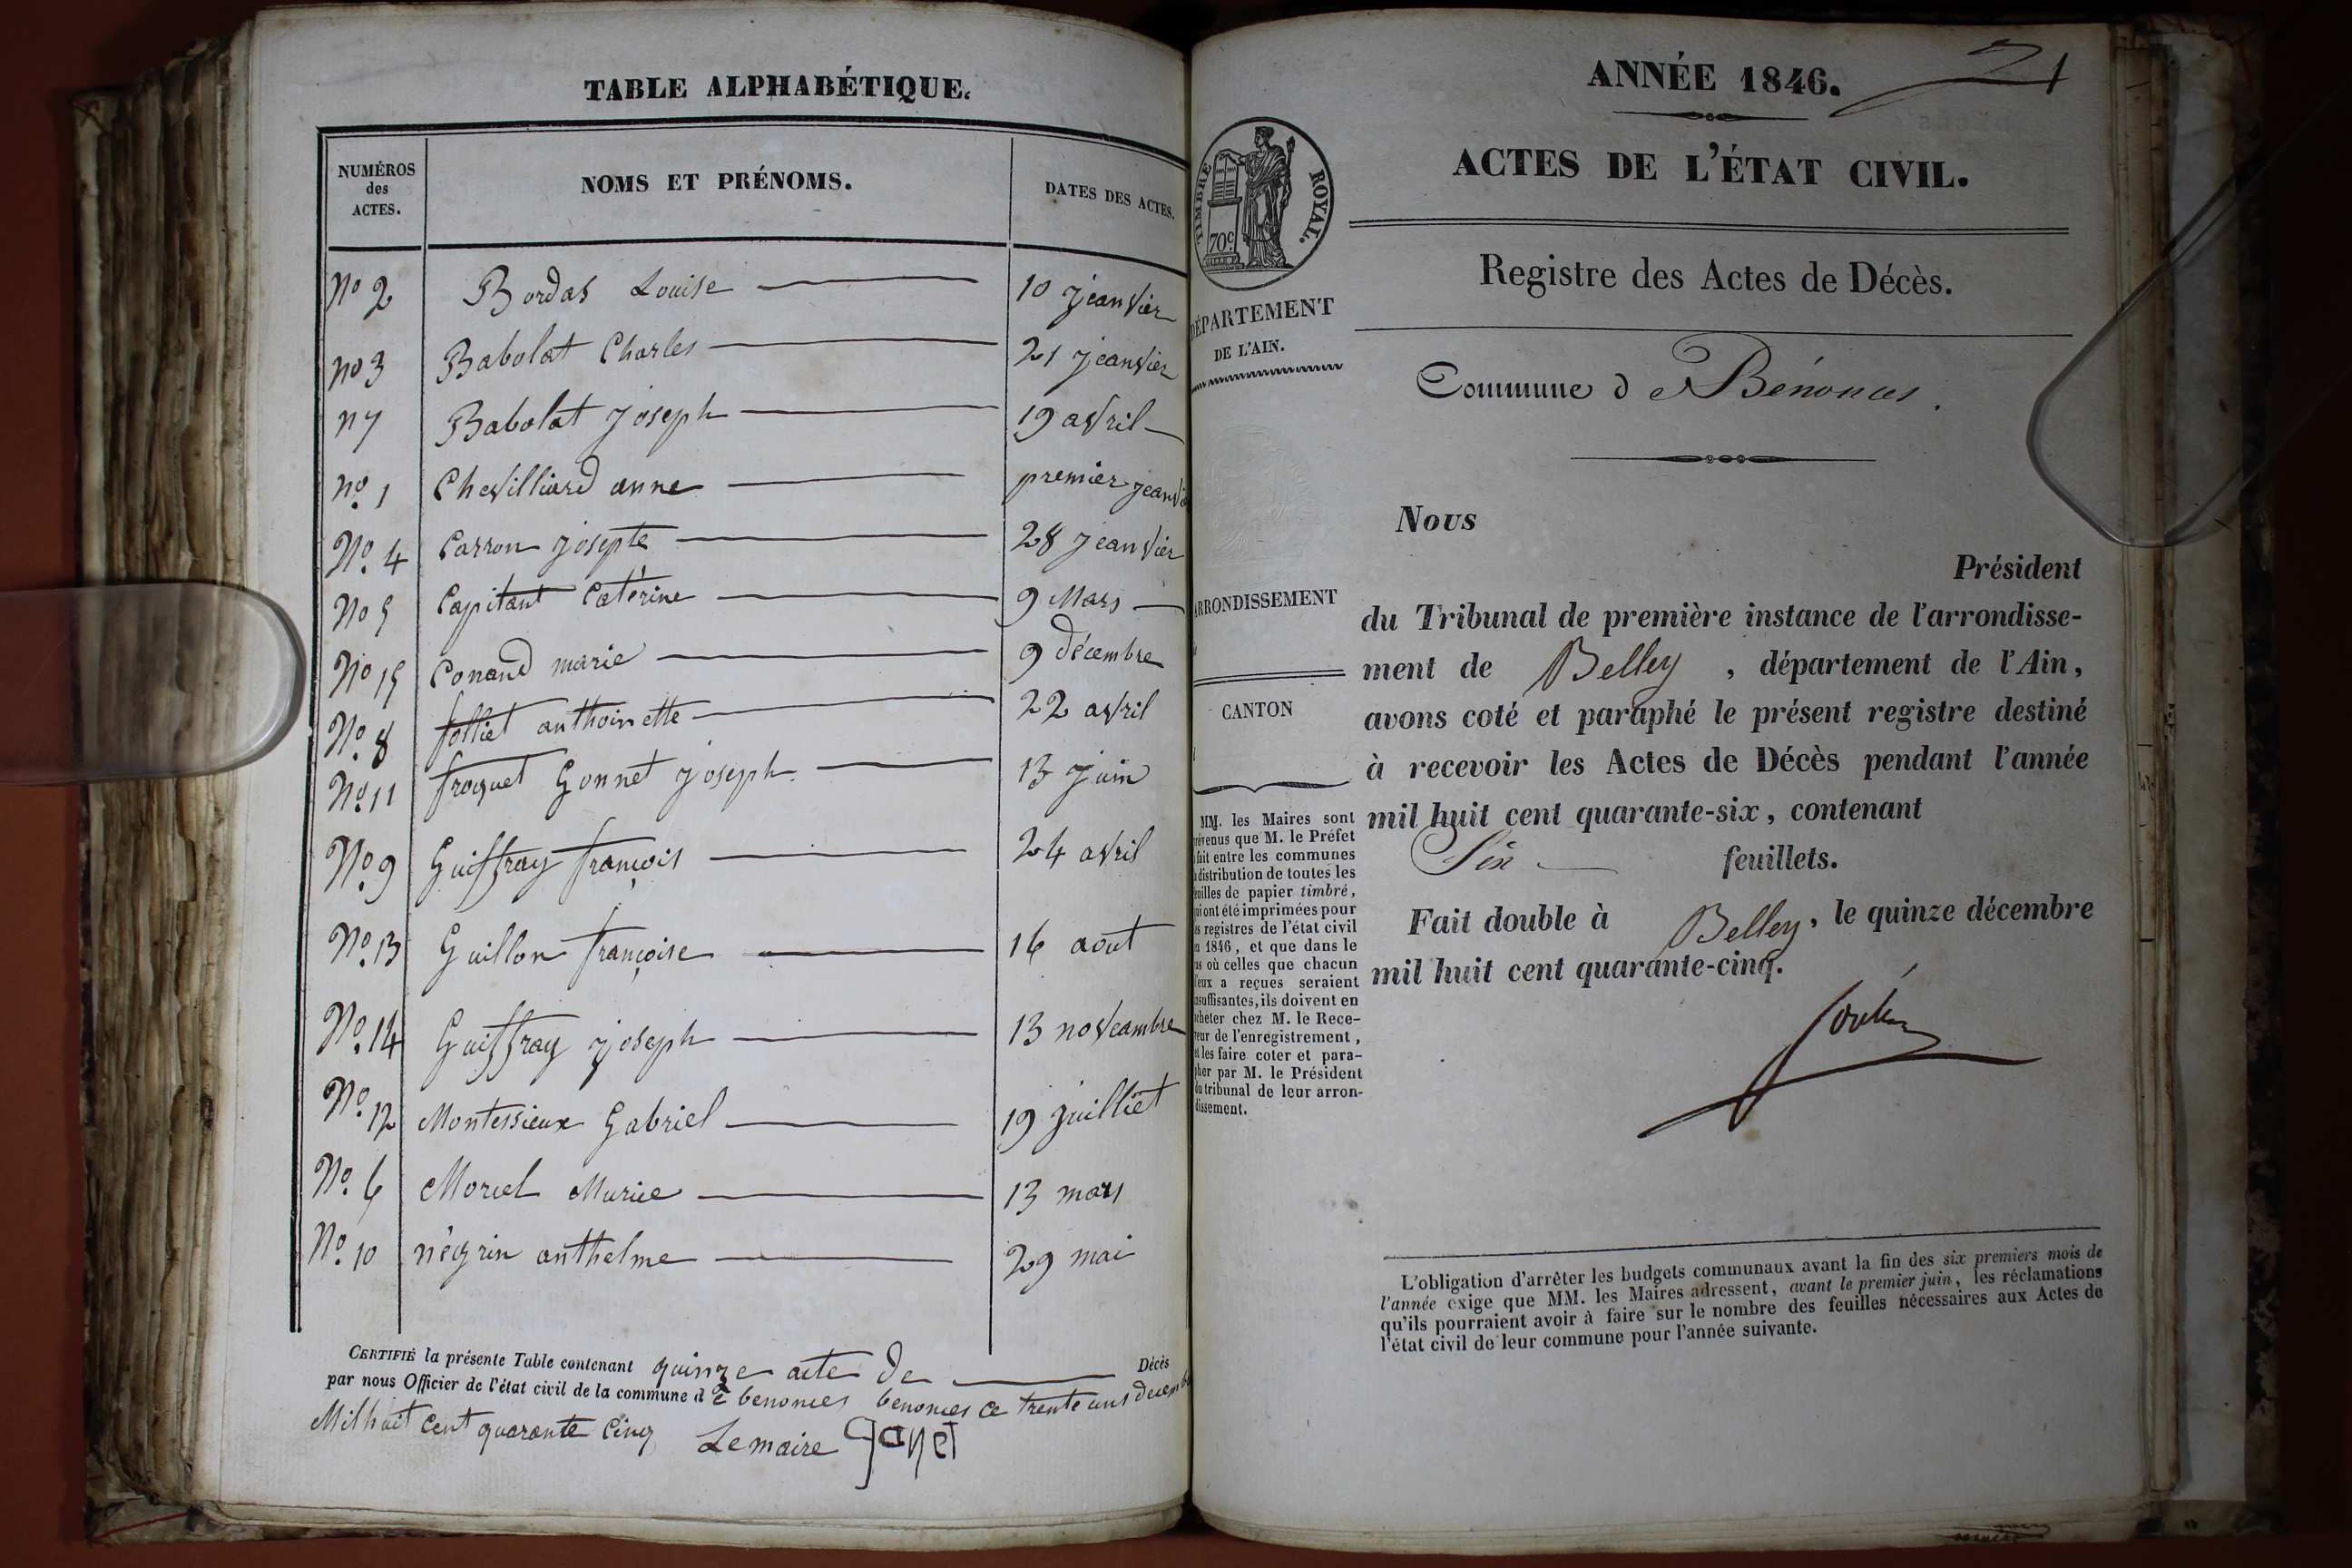 TABLE ALPHABÉTIQUE.
NUMÉROS
des
ACTES.
NOMS ET PRÉNOMS.
DATES DES ACTES.
No 2 Bordas Louise 10 jeanvier
no 3 Babolat Charles 21 jeanvier
n 7 Babolat joseph 19 avril
no. 1 Chevilliard anne premier jeanvi
No. 4 Carron josepte 28 jeanvier
No 5 Capitant Catérine 9 Mars
No 15 Conand marie 9 décembre
No. 8 folliet anthoinette 22 avril
No. 11 froquet Gonnet joseph 13 Juin
No. 9 Guiffray françois 24 avril
No. 13 Guillon françoise 16 aout
No. 14 Guiffray joseph 13 noveambre
No. 12 Montessieux Gabriel 19 juilliet
No. 6 Morel Marie 13 mars
No. 10 négrin anthelme 29 mai
CERTIFIÉ la présente Table contenant quinze acte de Décès
par nous Officier de l'état civil de la commune d e benonces benonces ce trente uns decemb
Mil huit cent quarante cinq Le maire Gonet
ANNÉE 1846.
21
ACTES DE L'ÉTAT CIVIL.
TIMBRE ROYAL.
70c
Registre des Actes de Décès.
DÉPARTEMENT
DE L'AIN.
Commune d e Bénonces.
ARRONDISSEMENT
CANTON
MM. les Maires sont
révenus que M. le Préfet
fait entre les communes
distribution de toutes les
euilles de papier timbré,
ui ont été imprimées pour
es registres de l'état civil
n 1846, et que dans le
as où celles que chacun
d'eux a reçues seraient
nsuffisantes, ils doivent en
cheter chez M. le Rece-
veur de l'enregistrement,
et les faire coter et para-
pher par M. le Président
du tribunal de leur arron-
dissement.
Nous
Président
du Tribunal de première instance de l'arrondisse-
ment de Belley, département de l'Ain,
avons coté et paraphé le présent registre destiné
à recevoir les Actes de Décès pendant l'année
mil huit cent quarante-six, contenant
Six feuillets.
Fait double à Belley, le quinze décembre
mil huit cent quarante-cinq.
L'obligation d'arrêter les budgets communaux avant la fin des six premiers mois de
l'année exige que MM. les Maires adressent, avant le premier juin, les réclamations
qu'ils pourraient avoir à faire sur le nombre des feuilles nécessaires aux Actes de
l'état civil de leur commune pour l'année suivante.